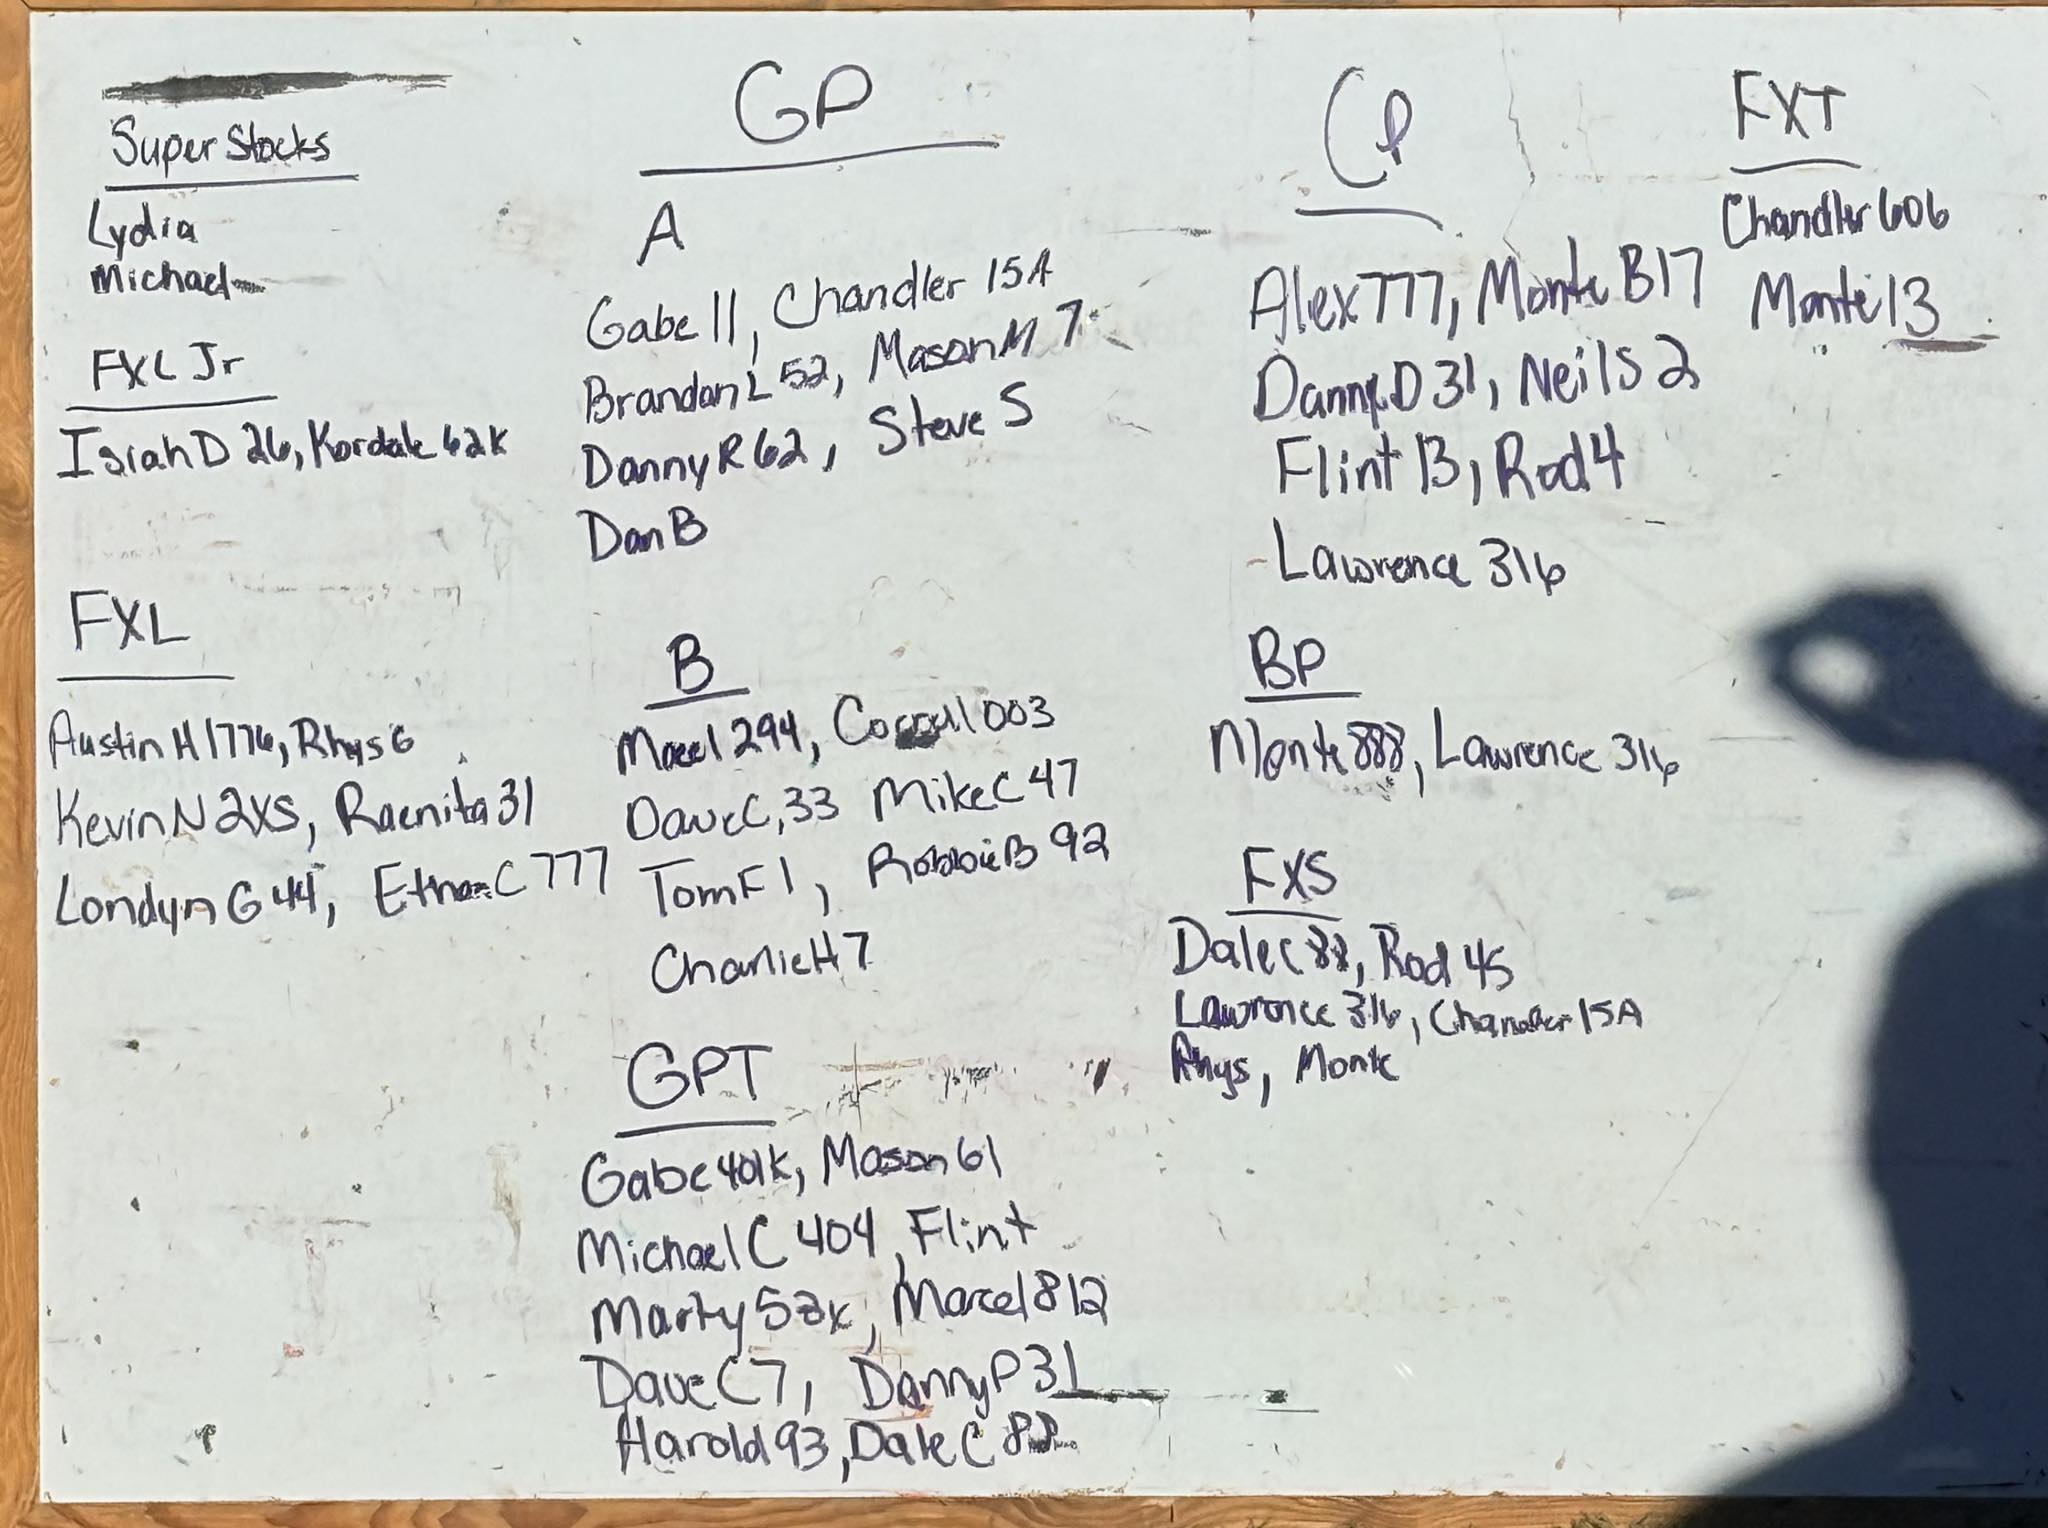 Super Stocks
Lydia
Michael
FXL Jr
Isiah D 26, Kordale 62K
FXL
Austin H 1776, Rhys 6
Kevin N 2XS, Raenita 31
Londyn G 44, Ethan C 777
GP
A
Gabe 11, Chandler 15A
Brandon L 52, Mason M 7
Danny R 62, Steve S
Dan B
B
294, 003
Dave C, 33 Mike C 47
Tom F 1, Robbie B 92
Charlie H 7
GPT
Gabe 401K, Mason 61
Michael C 404, Flint
Marty 52K, Marcel 812
Dave C 7, Danny P 31
Harold 93, Dale C 88
CP
Alex 777, Monte B17
Danny D 31, Neil S 2
Flint 13, Rod 4
Lawrence 316
BP
Monte 888, Lawrence 316
FXS
Dale C 88, Rod 45
Lawrence 316, Chandler 15A
Rhys, Monte
FXT
Chandler 606
Monte 13